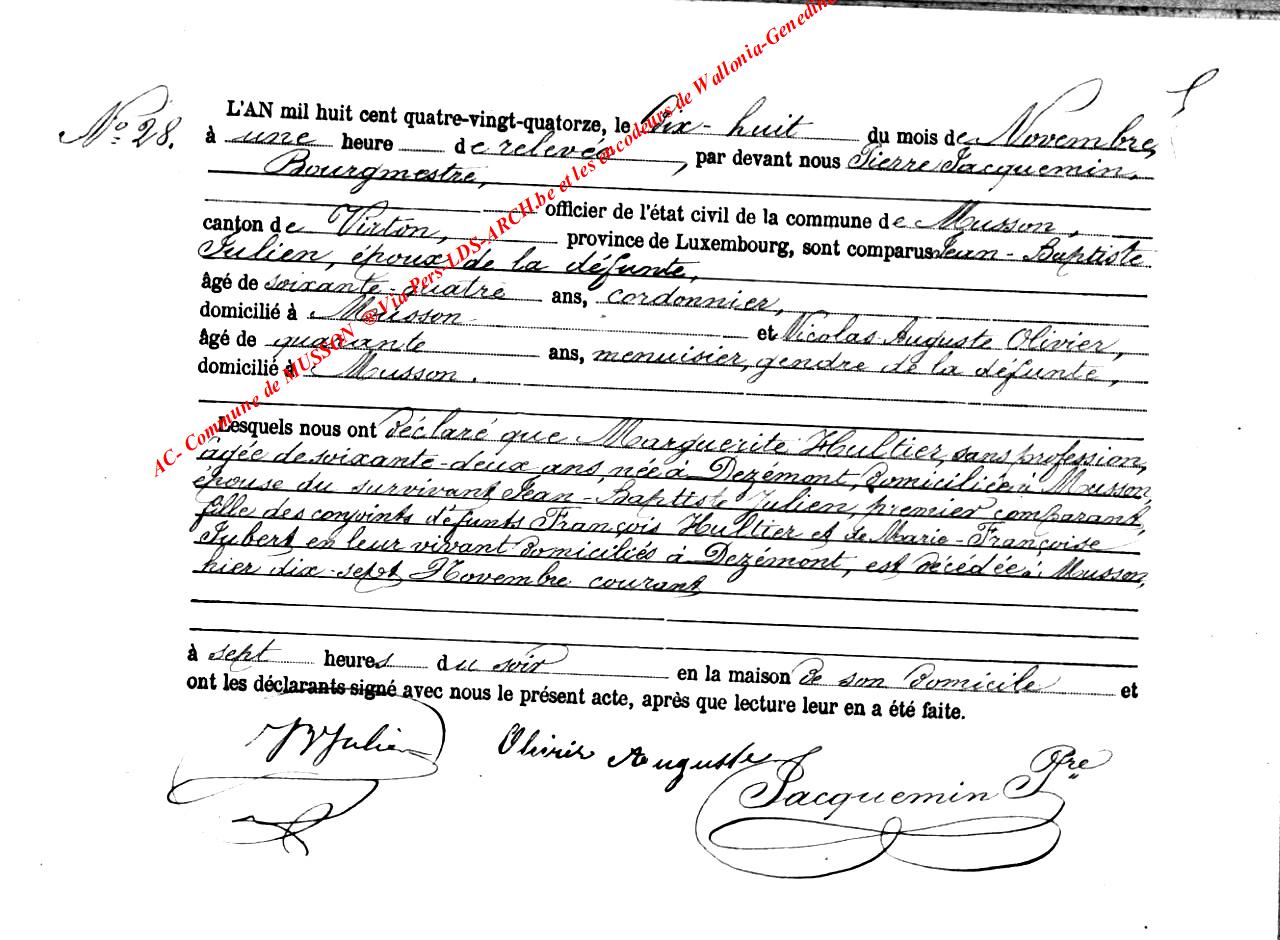 Nº 28.
L'AN mil huit cent quatre-vingt-quatorze, le dix-huit du mois de Novembre,
à une heure de relevée, par devant nous Pierre Jacquemin,
Bourgmestre,
officier de l'état civil de la commune de Musson,
canton de Virton, province de Luxembourg, sont comparus Jean-Baptiste
Julien, époux de la défunte,
âgé de soixante-quatre ans, cordonnier,
domicilié à Musson et Nicolas Auguste Olivier,
âgé de quarante ans, menuisier, gendre de la défunte,
domicilié à Musson.
Lesquels nous ont déclaré que Marguerite Hultier, sans profession,
âgée de soixante-deux ans, née à Dezémont, domiciliée à Musson,
épouse du survivant Jean-Baptiste Julien, premier comparant,
fille des conjoints défunts François Hultier et de Marie-Françoise
Jubert en leur vivant domiciliés à Dezémont, est décédée à Musson,
hier dix-sept Novembre courant
à sept heures du soir en la maison de son domicile et
ont les déclarants signé avec nous le présent acte, après que lecture leur en a été faite.
JBJulien Olivier Auguste Jacquemin Pre
AC- Commune de MUSSON ®Via Pers-LDS-ARCH.be et les encodeurs de Wallonia-Genedin